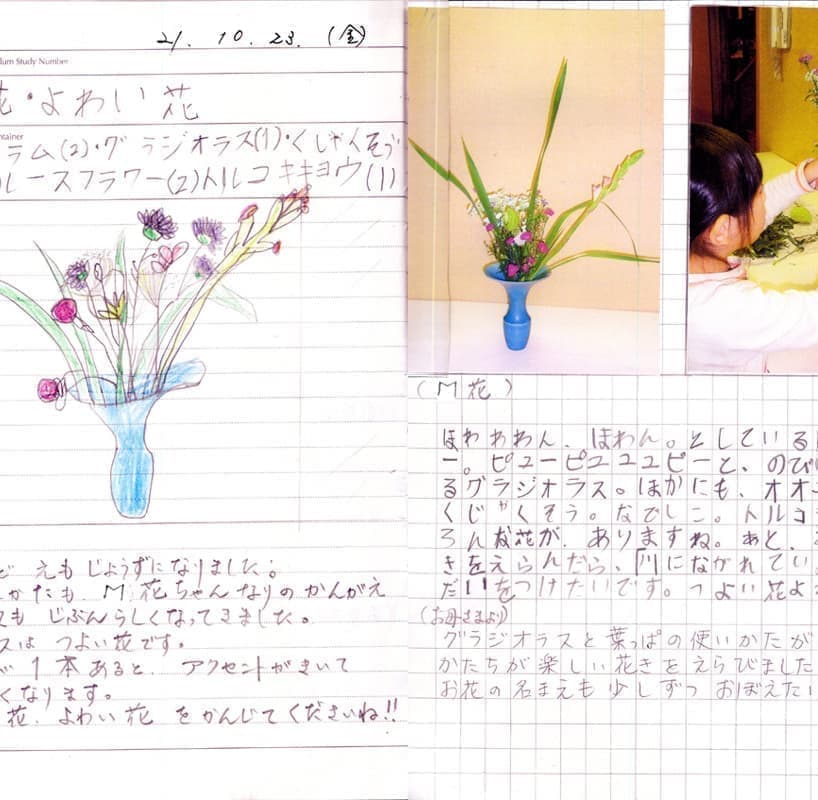 21. 10. 23. (金)
lum Study Number
花・よわい花
ntainer
ラム(2)・グラジオラス(1)・くじゃくそう
ルースフラワー(2)トルコキキョウ(1)
えもじょうずになりました。
かたも、M花ちゃんなりのかんがえ
も じぶんらしくなってきました。
スは つよい花です。
1本あると、アクセントがきいて
くなります。
花、よわい花 をかんじてくださいね!!
(M花)
ほわわわん、ほわん。としている
ー。ピューピユユユピーと、のび
るグラジオラス。ほかにも、オオ
くじゃくそう。なでしこ。トルコ
ろんな花が、ありますね。あと、
きをえらんだら、「川にながれてい
だいをつけたいです。つよい花よ
(お母さまより)
グラジオラスと葉っぱの使いかたが
かたちが楽しい花きをえらびました
お花の名まえも少しずつ おぼえたい